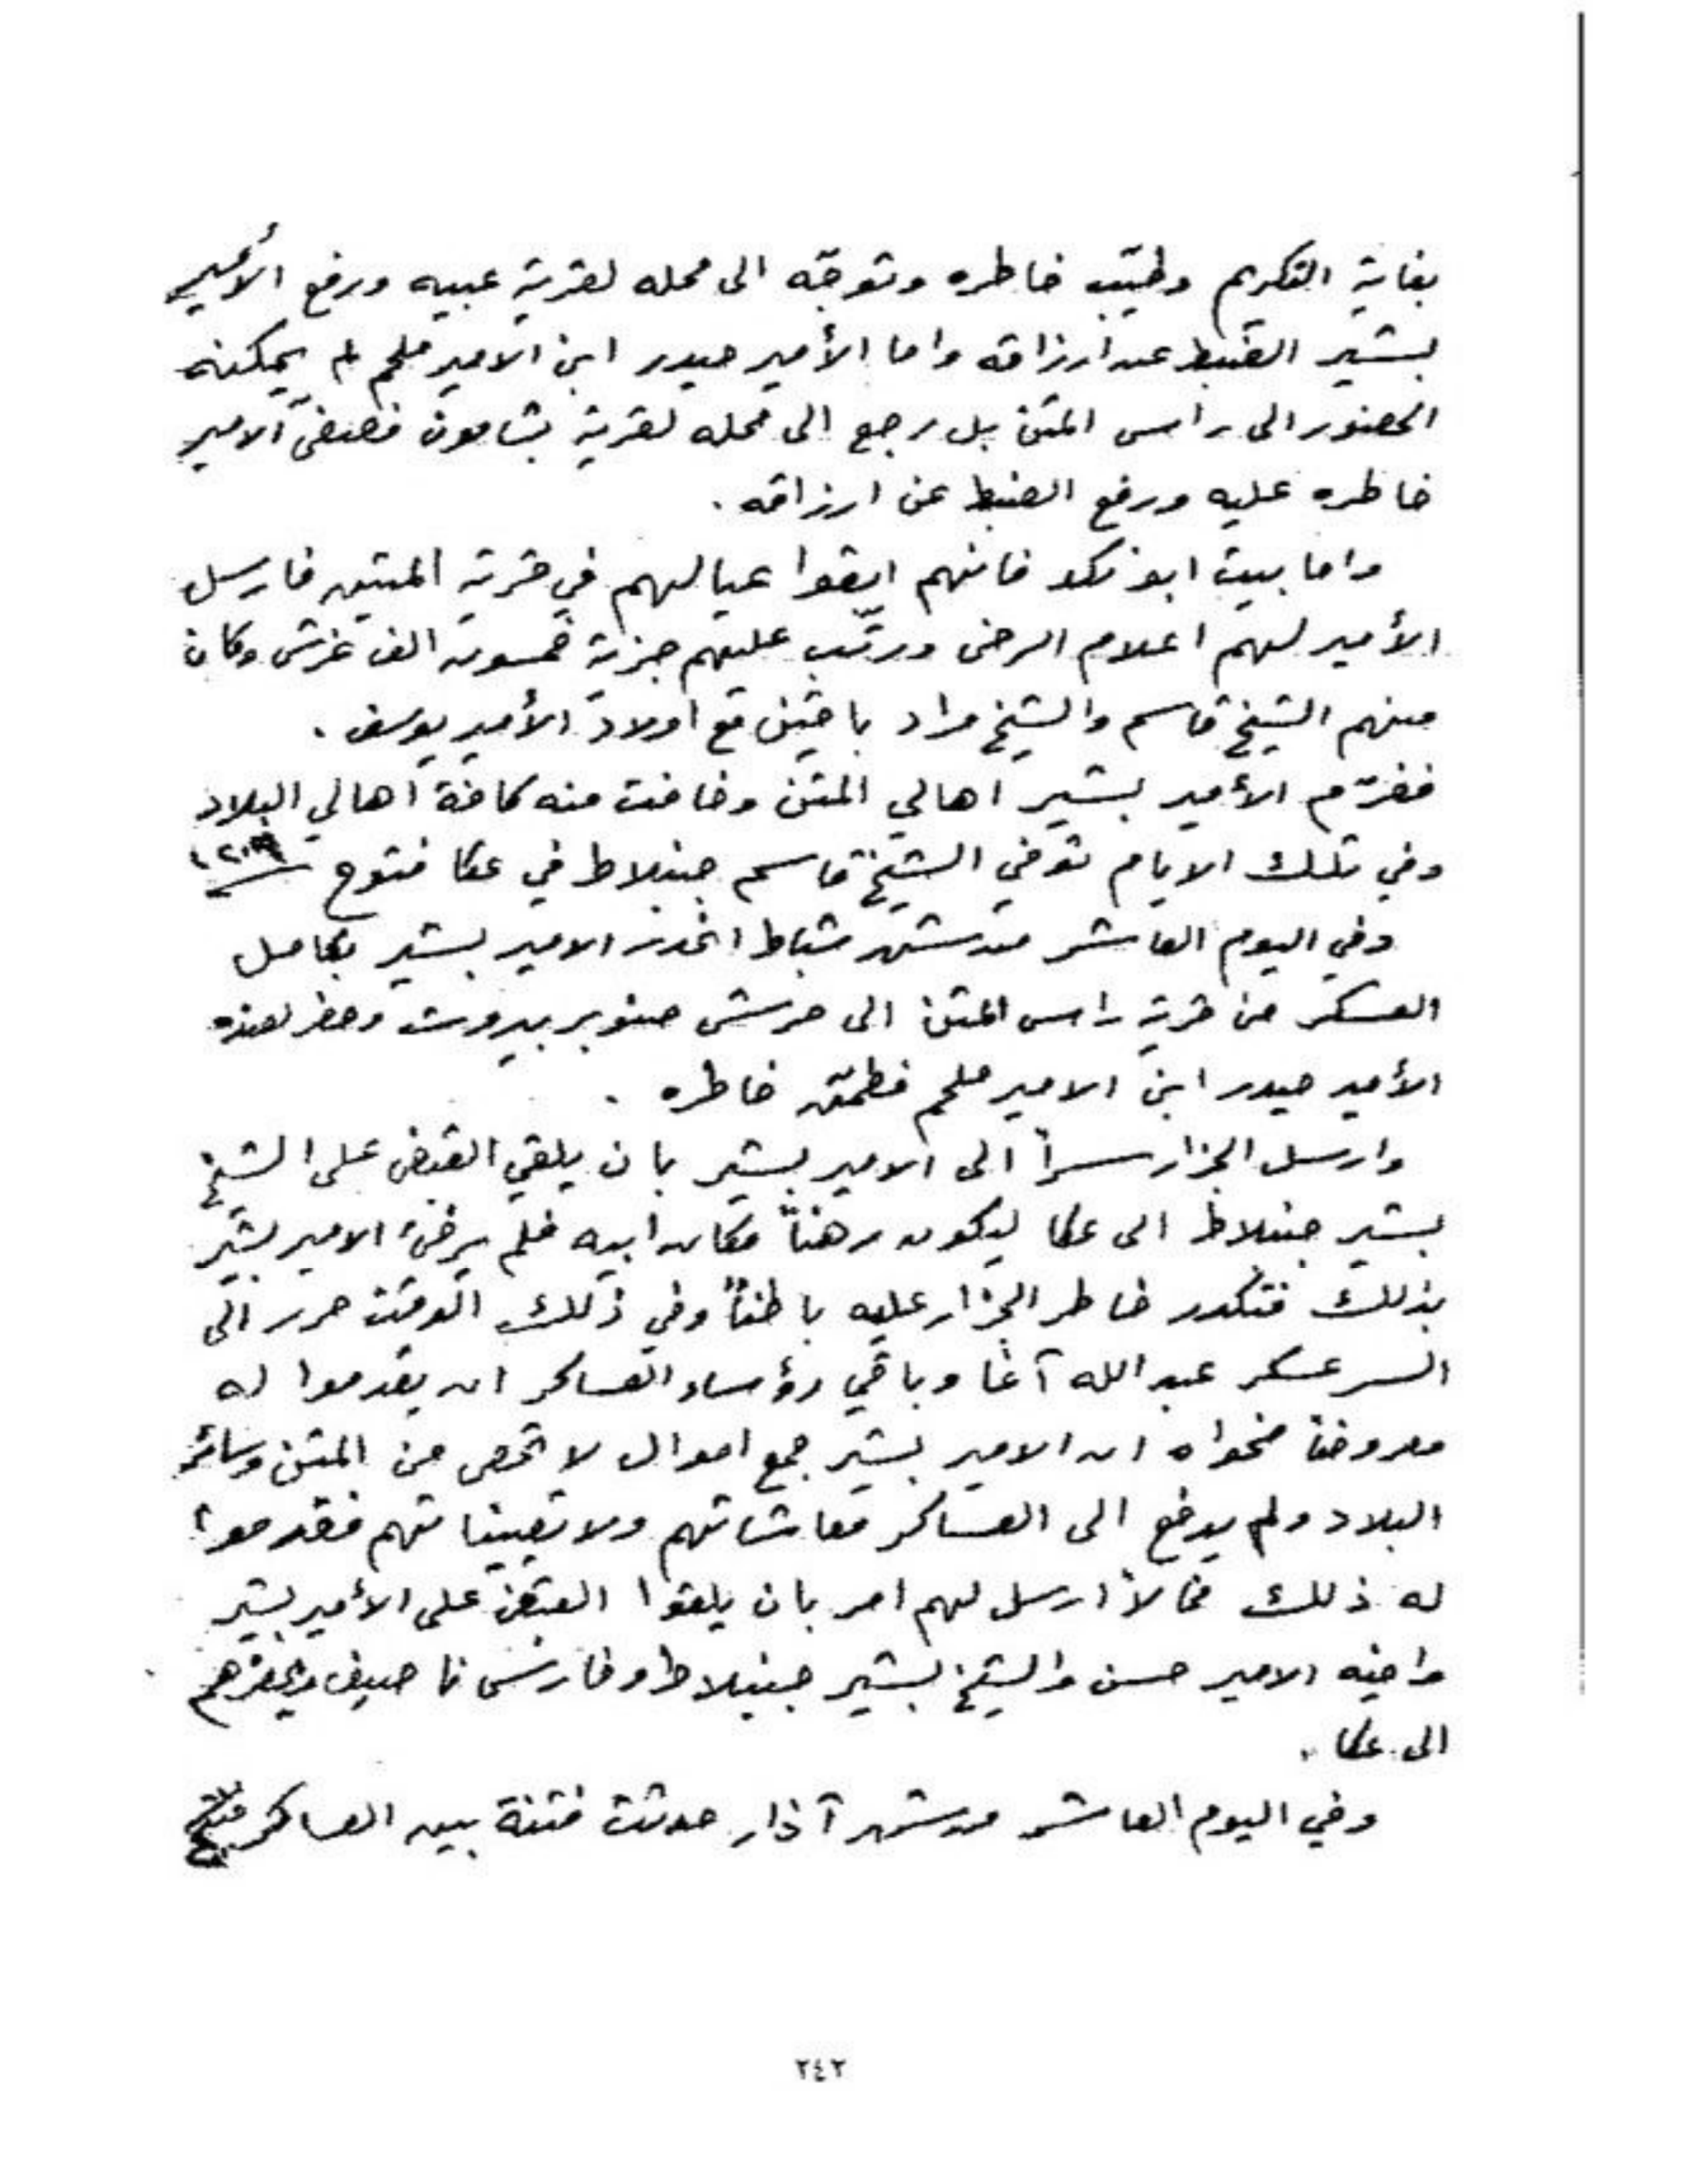 بغاية التكريم وطيّب خاطره وتوجّه الى محله لقرية عبيه ورفع الأمير
بشير الضبط عن ارزاقه واما الأمير حيدر ابن الامير ملحم لم يمكنه
الحضور الى راس المتن بل رجع الى محله لقرية بشامون فصفى الامير
خاطره عليه ورفع الضبط عن ارزاقه .
واما بيت ابو نكد فانهم ابقوا عيالهم في قرية المتين فارسل
الأمير لهم اعلام الرضى ورتّب عليهم جزية خمسون الف غرش وكان
منهم الشيخ قاسم والشيخ مراد باقيين مع اولاد الأمير يوسف .
فغرّم الأمير بشير اهالي المتن وخافت منه كافة اهالي البلاد
وفي تلك الايام توفي الشيخ قاسم جنبلاط في عكا فتوح
وفي اليوم العاشر من شهر شباط انحدر الامير بشير بكامل
العسكر من قرية راس المتن الى حرش صنوبر بيروت وحضر لعنده
الأمير حيدر ابن الامير ملحم فطمّن خاطره .
وارسل الجزار سراً الى الامير بشير بان يلقي القبض على الشيخ
بشير جنبلاط الى عكا ليكون رهناً مكان ابيه فلم يرضَ الامير بشير
بذلك فتكدر خاطر الجزار عليه باطناً وفي ذلك الوقت حرر الى
السر عسكر عبد الله آغا وباقي رؤساء العساكر ان يقدموا له
معروضاً فحواه ان الامير بشير جمع اموال لا تحصى من المتن وسائر
البلاد ولم يدفع الى العساكر معاشاتهم ولا تعييناتهم فقدموا
له ذلك فحالاً ارسل لهم امر بان يلقوا القبض على الأمير بشير
واخيه الامير حسن والشيخ بشير جنبلاط وفارس ناصيف ويحضرهم
الى عكا .
وفي اليوم العاشر من شهر آذار حدثت فتنة بين العساكر
٢٤٢